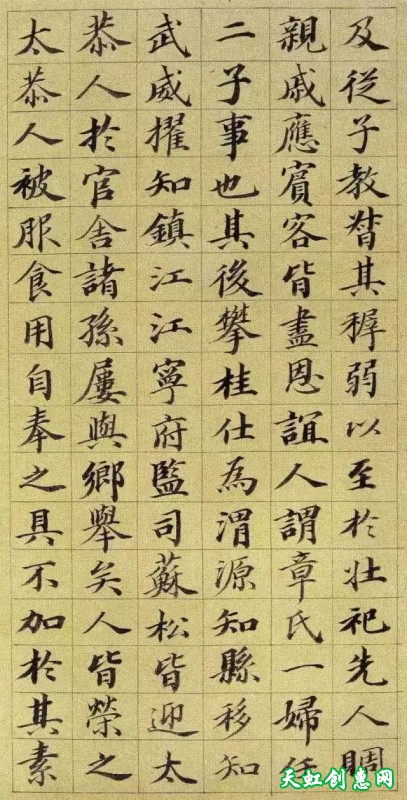 及從子教督其穉弱以至於壯祀先人賙
親戚應賓客皆盡恩誼人謂章氏一婦任
二子事也其後攀桂仕為渭源知縣移知
武威擢知鎮江江寧府監司蘇松皆迎太
恭人於官舍諸孫屢與鄉舉矣人皆榮之
太恭人被服食用自奉之具不加於其素
天虹创意网